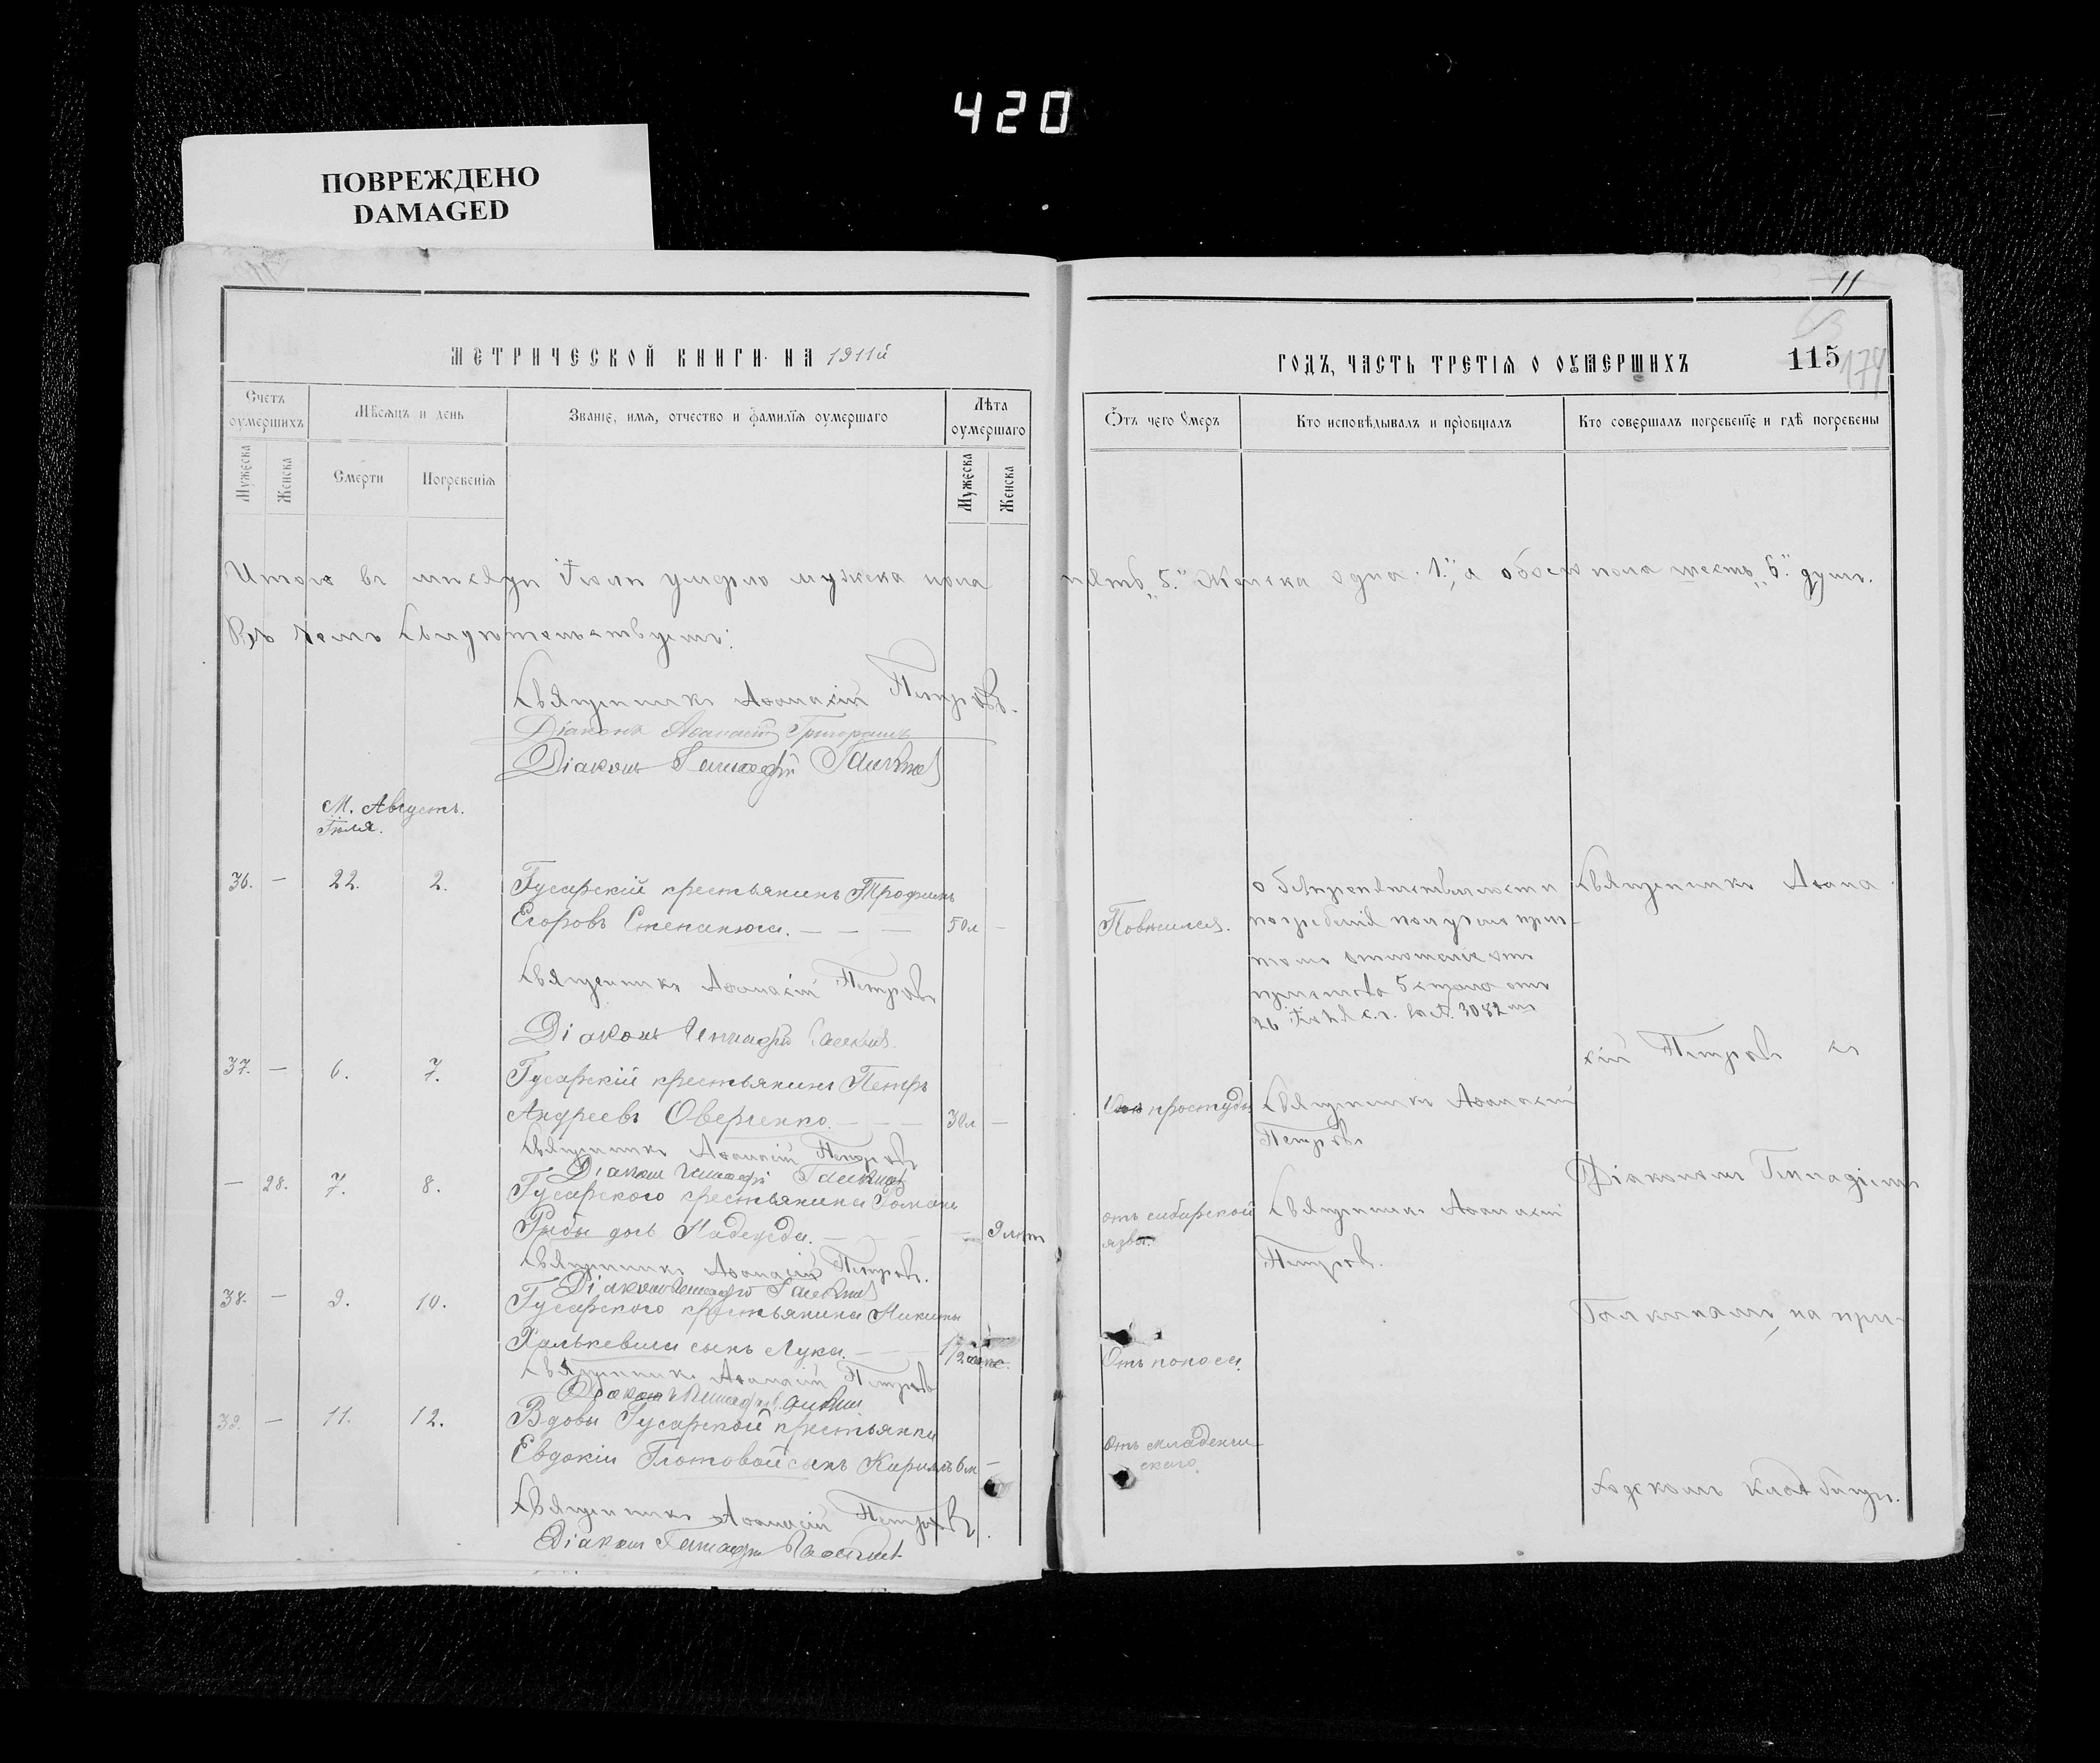 420
ПОВРЕЖДЕНО
DAMAGED
11
МЕТРИЧЕСКОЙ КНИГИ НА 1911й
ГОДЪ, ЧАСТЬ ТРЕТІѦ О ОУМЕРШИХЪ
115
174
Счетъ оумершихъ
Мѣсѧцъ и день
Званіе, имѧ, отчество и фамиліѧ оумершаго
Лѣта оумершаго
Мужеска
Женска
Смерти
Погребеніѧ
Мужеска
Женска
Ѿтъ чего умеръ
Кто исповѣдывалъ и пріобщалъ
Кто совершалъ погребеніе и гдѣ погребены
Итого въ мѣсяцѣ Іюлѣ умерло мужеска пола пять „5.“ Женска одна „1.“, а обоего пола шесть „6.“ душъ.
Въ чемъ свидѣтельствуемъ:
Священникъ Аѳанасій Петровъ.
Діаконъ Аѳанасій Григорашъ
Діаконъ Геннадій Галкинъ
М. Августъ.
Іюля.
36. — 22. 2. Гусарскій крестьянинъ Трофимъ
Егоровъ Степанюга. — — — 50 л —
Повѣсился.
о безпрепятственности
погребенія получено при-
томъ отношеніе отъ
пристава 5 стана отъ
26 Іюля с.г. за №. 3082 мъ
Священникъ Аѳана-
Священникъ Аѳанасій Петровъ
Діаконъ Геннадій Галкинъ.
37. — 6. 7. Гусарскій крестьянинъ Петръ
Андреевъ Оверченко. — — — 30 л —
Отъ простуды
Священникъ Аѳанасій
Петровъ
сій Петровъ съ
Священникъ Аѳанасій Петровъ
Діаконъ Геннадій Галкинъ
— 28. 7. 8. Гусарского крестьянина Романа
Рыбы дочь Надежда. — — — — 9 лѣтъ
отъ сибирской
язвы.
Священникъ Аѳанасій
Петровъ.
Діакономъ Геннадіемъ
Священникъ Аѳанасій Петровъ.
Діаконъ Геннадій Галкинъ
38. — 9. 10. Гусарского крестьянина Никиты
Халькевича сынъ Лука. — — 1/2
Отъ поноса.
Галкинымъ, на при-
Священникъ Аѳанасій Петровъ
Діаконъ Геннадій Галкинъ
39. — 11. 12. Вдовы Гусарской крестьянки
Евдокіи Глотовой сынъ Кириллъ 6 м —
Отъ младенче-
скаго.
ходскомъ кладбищѣ.
Священникъ Аѳанасій Петровъ.
Діаконъ Геннадій Галкинъ.